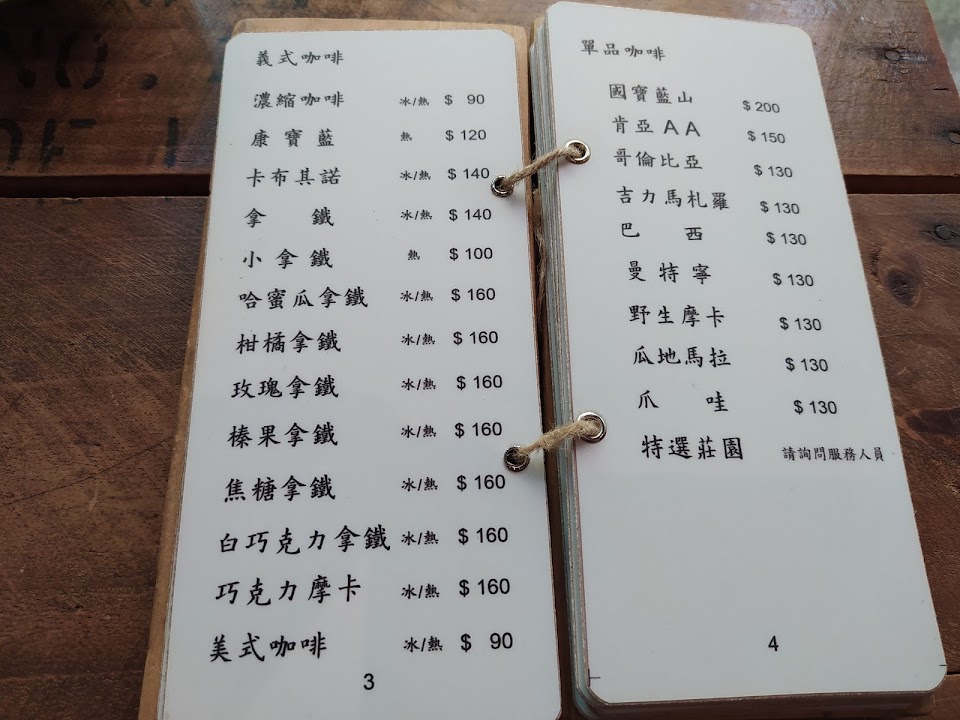 義式咖啡
濃縮咖啡 冰/熱 $ 90
康寶藍 熱 $ 120
卡布其諾 冰/熱 $ 140
拿鐵 冰/熱 $ 140
小拿鐵 熱 $ 100
哈蜜瓜拿鐵 冰/熱 $ 160
柑橘拿鐵 冰/熱 $ 160
玫瑰拿鐵 冰/熱 $ 160
榛果拿鐵 冰/熱 $ 160
焦糖拿鐵 冰/熱 $ 160
白巧克力拿鐵 冰/熱 $ 160
巧克力摩卡 冰/熱 $ 160
美式咖啡 冰/熱 $ 90
3
單品咖啡
國寶藍山 $ 200
肯亞AA $ 150
哥倫比亞 $ 130
吉力馬札羅 $ 130
巴西 $ 130
曼特寧 $ 130
野生摩卡 $ 130
瓜地馬拉 $ 130
爪哇 $ 130
特選莊園 請詢問服務人員
4